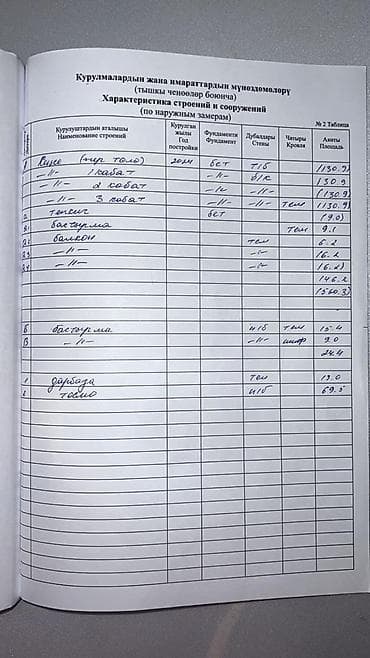 Курулмалардын жана имараттардын мүнөздөмөлөрү
(тышкы ченөөлөр боюнча)
Характеристика строений и сооружений
(по наружным замерам)
№ 2 Таблица
Курулуштардын аталышы Наименование строений Курулган жылы Год постройки Фундаменти Фундамент Дубалдары Стены Чатыры Кровля Аянты Площадь
2024 бет т/б (130.9)
—"— 1 кабат —"— б/к 130.9
—"— 2 кабат —"— —"— (130.9)
—"— 3 кабат —"— —"— тем (130.9)
бет (9.0)
бастырма тем 9.1
балкон тем 6.2
—"— —"— (6.2
—"— —"— (6.2)
146.2
(560.3)
Б бастырма тем 15.4
В —"— —"— шиф 9.0
24.4
1 дарбаза тем 13.0
2 тосмо 69.5